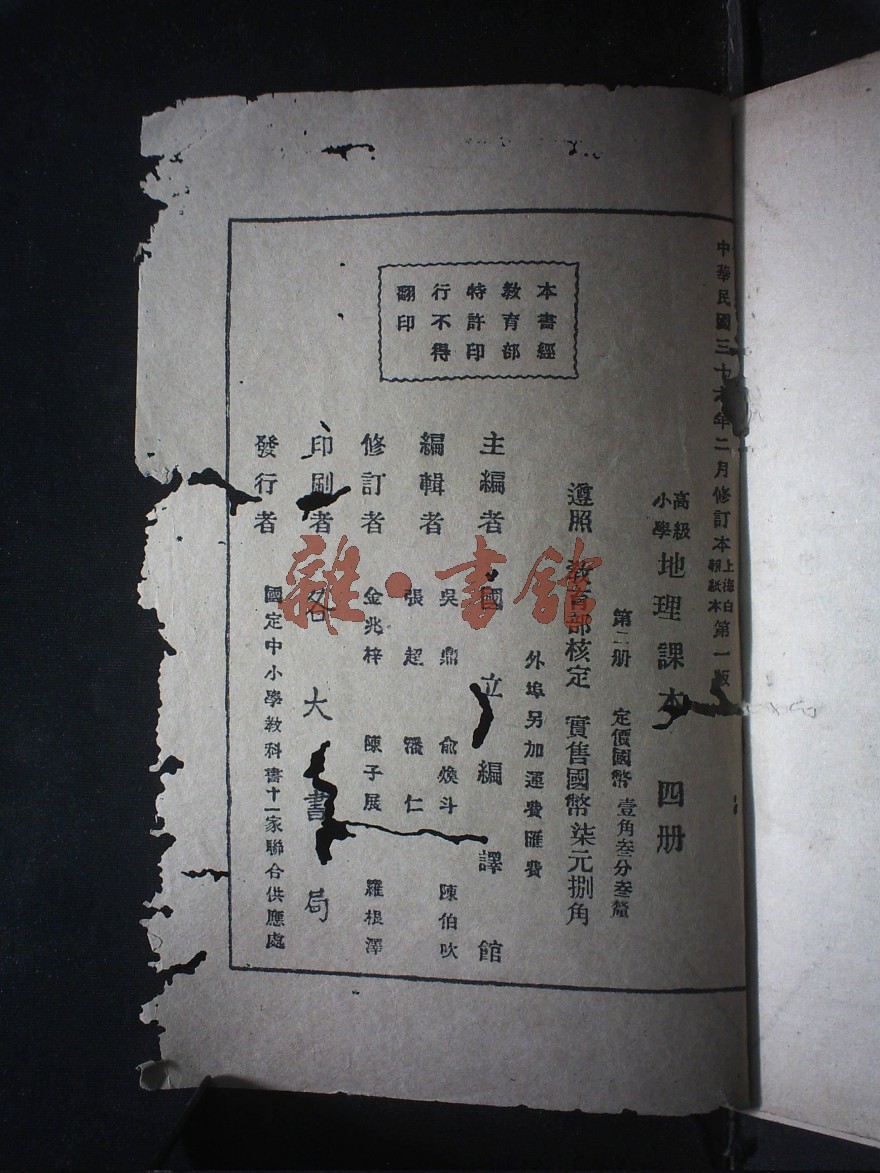 中華民國三十六年二月修訂本 上海白報紙本 第一版
高級小學 地理課本 四册
第二册 定價國幣 壹角叁分叁釐
遵照 教育部核定 實售國幣柒元捌角
外埠另加運費匯費
主編者 國立編譯館
編輯者 吳鼎 俞煥斗 陳伯吹
張超 潘仁
修訂者 金兆梓 陳子展 羅根澤
印刷者 各大書局
發行者 國定中小學教科書十一家聯合供應處
本書經
教育部
特許印
行不得
翻印
雜·書館